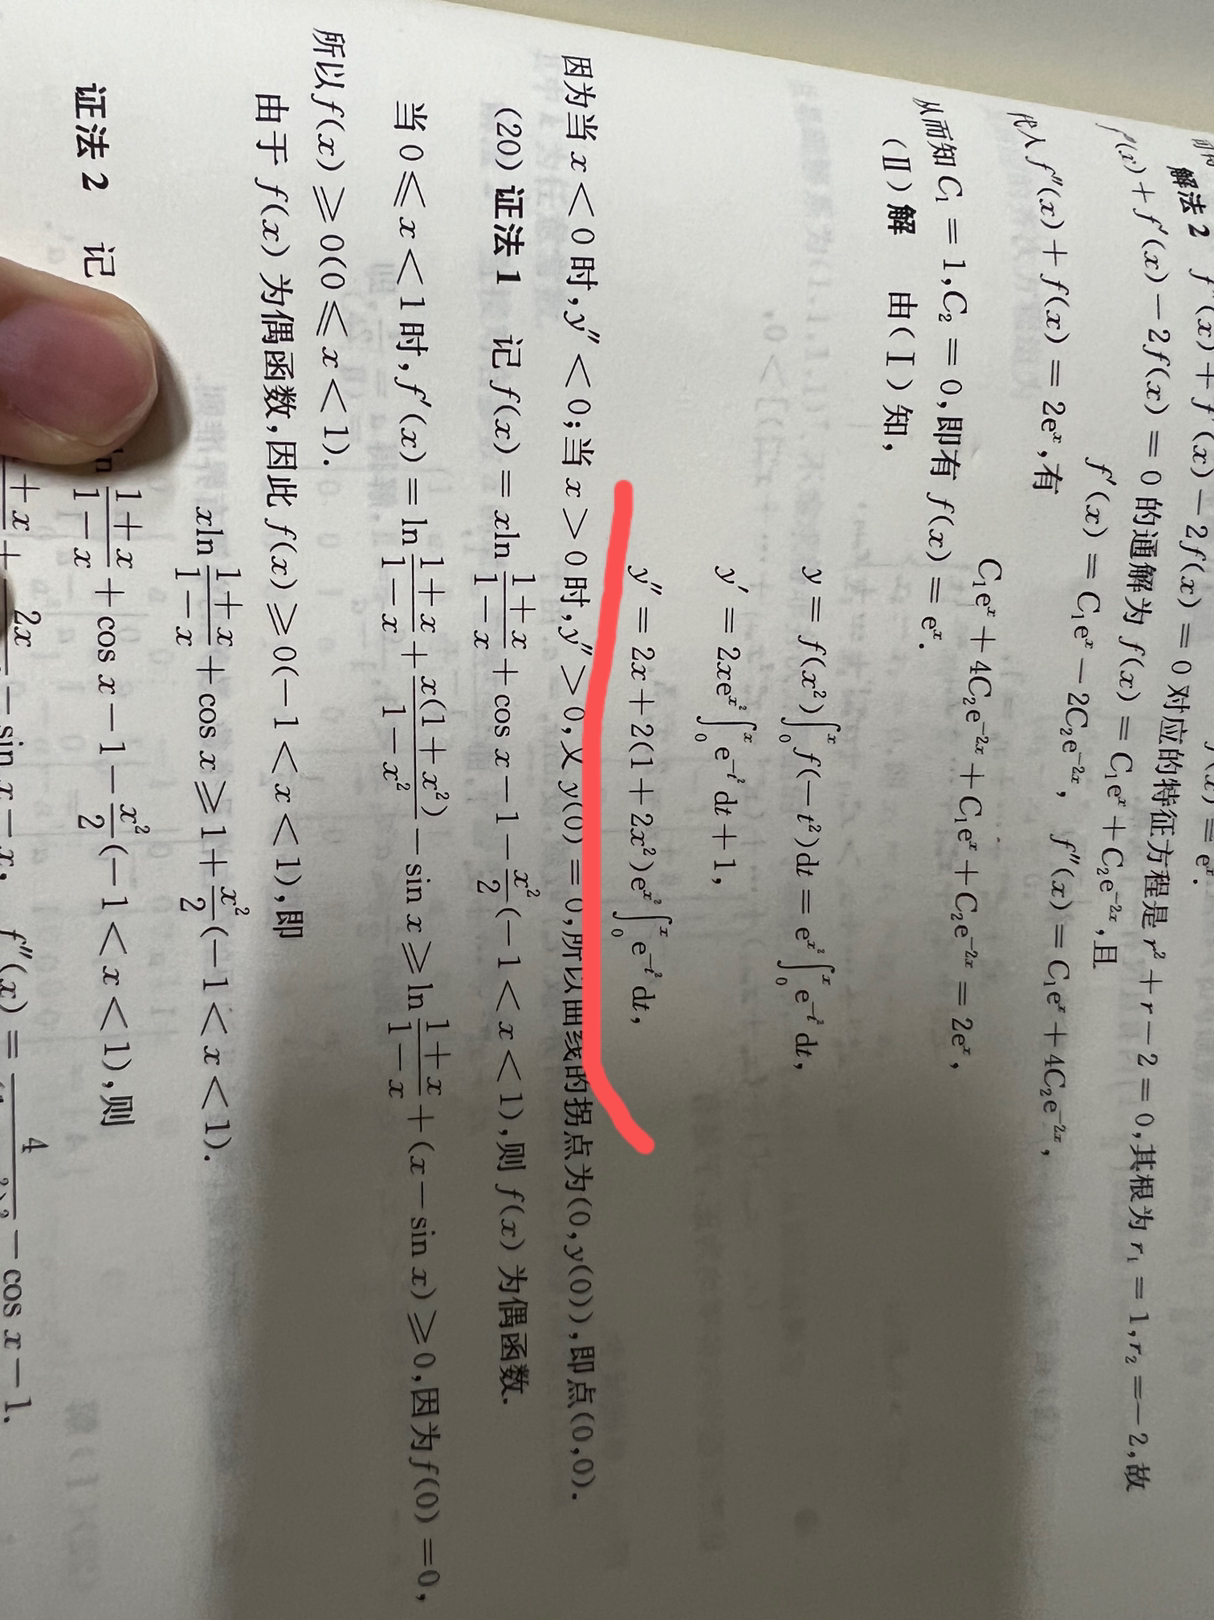 解法2 f″(x)+f′(x)-2f(x)=0对应的特征方程是r²+r-2=0,其根为r₁=1,r₂=-2,故
f″(x)+f′(x)-2f(x)=0的通解为f(x)=C₁eˣ+C₂e⁻²ˣ,且
f′(x)=C₁eˣ-2C₂e⁻²ˣ, f″(x)=C₁eˣ+4C₂e⁻²ˣ,
代入f″(x)+f(x)=2eˣ,有
C₁eˣ+4C₂e⁻²ˣ+C₁eˣ+C₂e⁻²ˣ=2eˣ,
从而知C₁=1,C₂=0,即有f(x)=eˣ.
(Ⅱ)解 由(Ⅰ)知,
y=f(x²)∫₀ˣf(-t²)dt=e^{x²}∫₀ˣe^{-t²}dt,
y′=2xe^{x²}∫₀ˣe^{-t²}dt+1,
y″=2x+2(1+2x²)e^{x²}∫₀ˣe^{-t²}dt,
因为当x<0时,y″<0;当x>0时,y″>0,又y(0)=0,所以曲线的拐点为(0,y(0)),即点(0,0).
(20)证法1 记f(x)=xln\frac{1+x}{1-x}+cos x-1-\frac{x²}{2}(-1<x<1),则f(x)为偶函数.
当0≤x<1时,f′(x)=ln\frac{1+x}{1-x}+\frac{x(1+x²)}{1-x²}-sin x≥ln\frac{1+x}{1-x}+(x-sin x)≥0,因为f(0)=0,
所以f(x)≥0(0≤x<1).
由于f(x)为偶函数,因此f(x)≥0(-1<x<1),即
xln\frac{1+x}{1-x}+cos x≥1+\frac{x²}{2}(-1<x<1).
证法2 记 \frac{1+x}{1-x}+cos x-1-\frac{x²}{2}(-1<x<1),则
-sin x-x, f″(x)= -cos x-1.